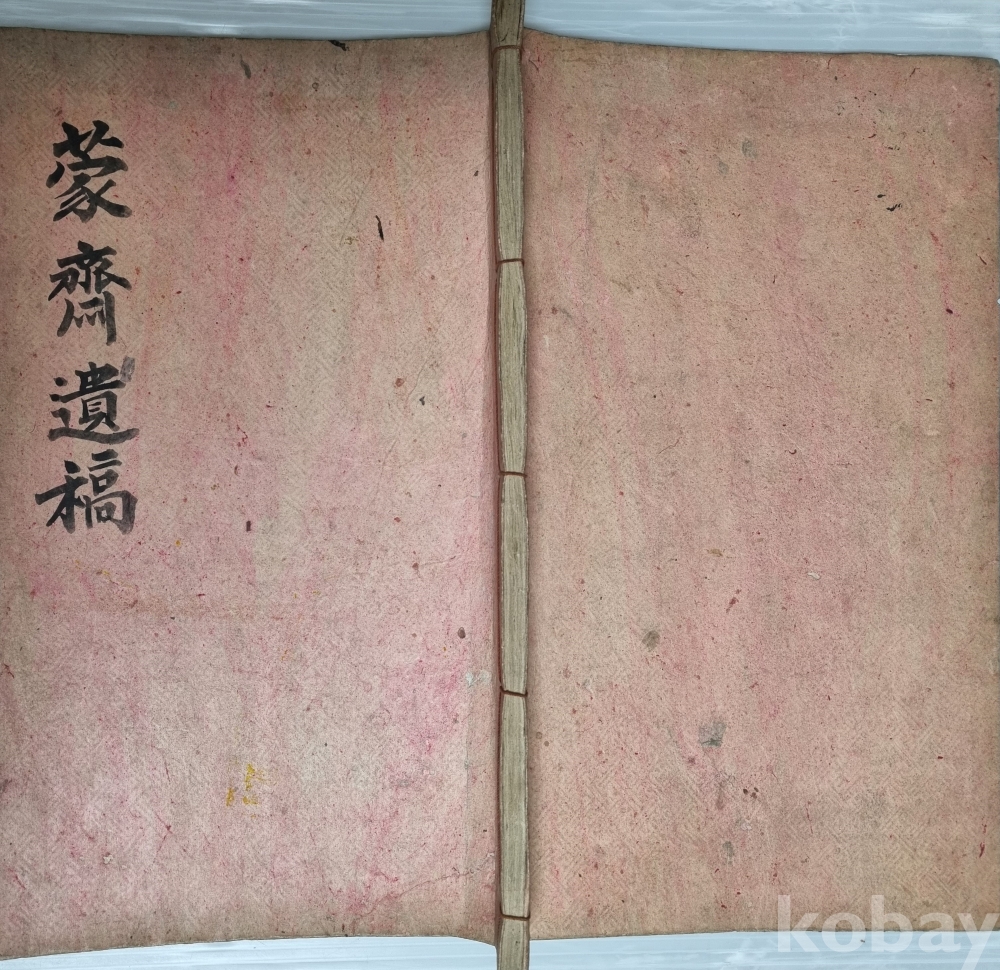 蒙齋遺稿
kobay